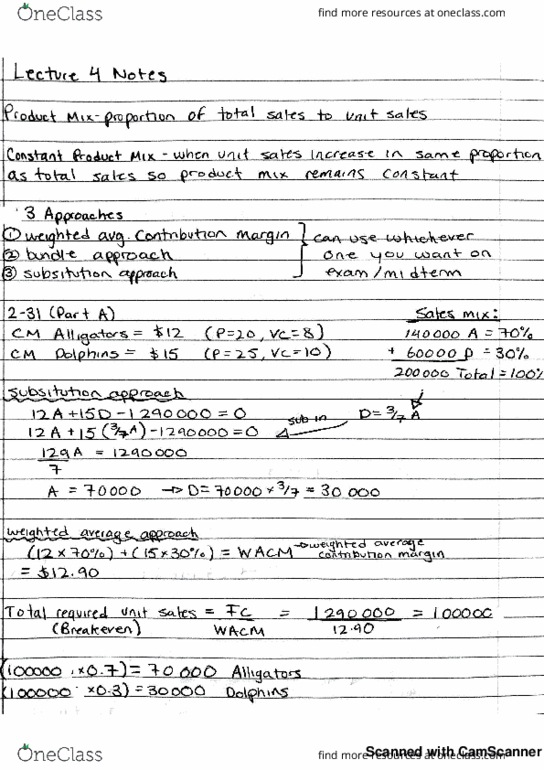 OneClass
find more resources at oneclass.com
Lecture 4 Notes
Product Mix - proportion of total sales to unit sales
Constant Product Mix - when unit sales increase in same proportion
as total sales so product mix remains constant
3 Approaches
① weighted avg. Contribution margin
② bundle approach
③ subsitution approach
can use whichever
one you want on
exam/midterm
2-31 (Part A)
CM Alligators = $12 (P=20, VC=8)
CM Dolphins = $15 (P=25, VC=10)
Sales mix:
140000 A = 70%
+ 60000 D = 30%
200000 Total = 100%
subsitution approach
12A + 15D - 1290000 = 0
D = 3/7 A
12A + 15 (3/7A) - 1290000 = 0
sub in
129A = 1290000
7
A = 70000 → D = 70000 × 3/7 = 30000
weighted average approach
(12 × 70%) + (15 × 30%) = WACM → weighted average
contribution margin
= $12.90
Total required unit sales = FC = 1290000 = 100000
(Breakeven) WACM 12.90
(100000 × 0.7) = 70000 Alligators
(100000 × 0.3) = 30000 Dolphins
OneClass
find more resources at oneclass.com
Scanned with CamScanner